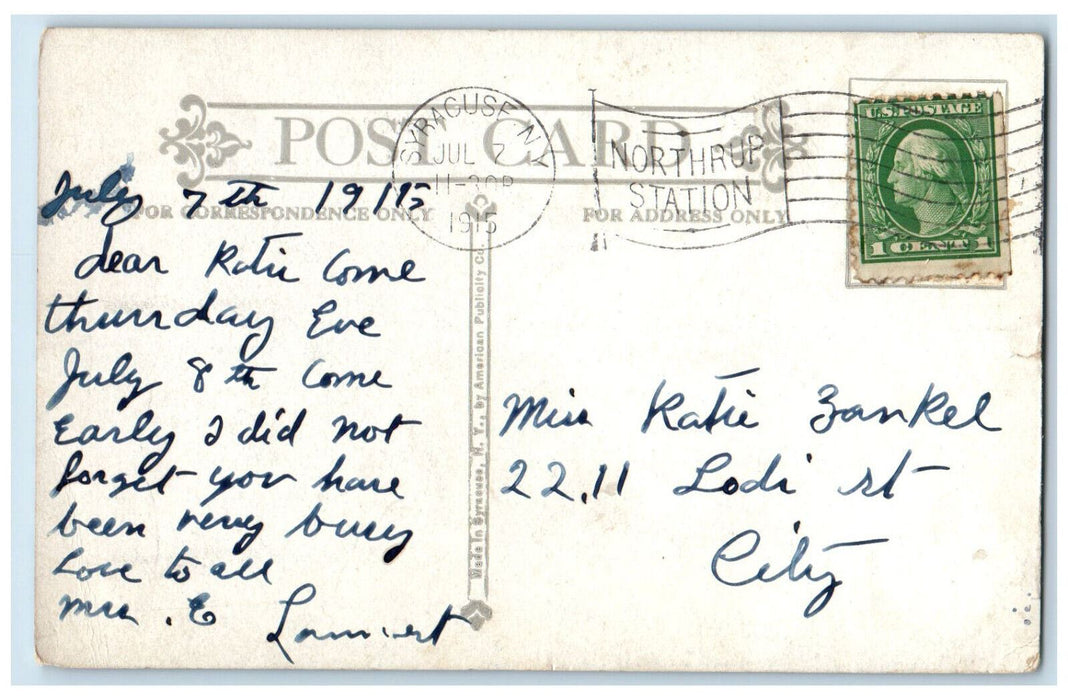 POST CARD
SYRACUSE N.Y.
JUL 7
11-30P
1915
NORTHRUP
STATION
U.S. POSTAGE
1 CENT 1
FOR CORRESPONDENCE ONLY
FOR ADDRESS ONLY
July 7th 1915
dear Katie Come
thursday Eve
July 8th Come
Early I did not
forget you have
been very busy
Love to all
Mrs. E
Made in Syracuse, N. Y., by American Publicity Co.
Miss Katie Zankel
22.11 Lodi st
City